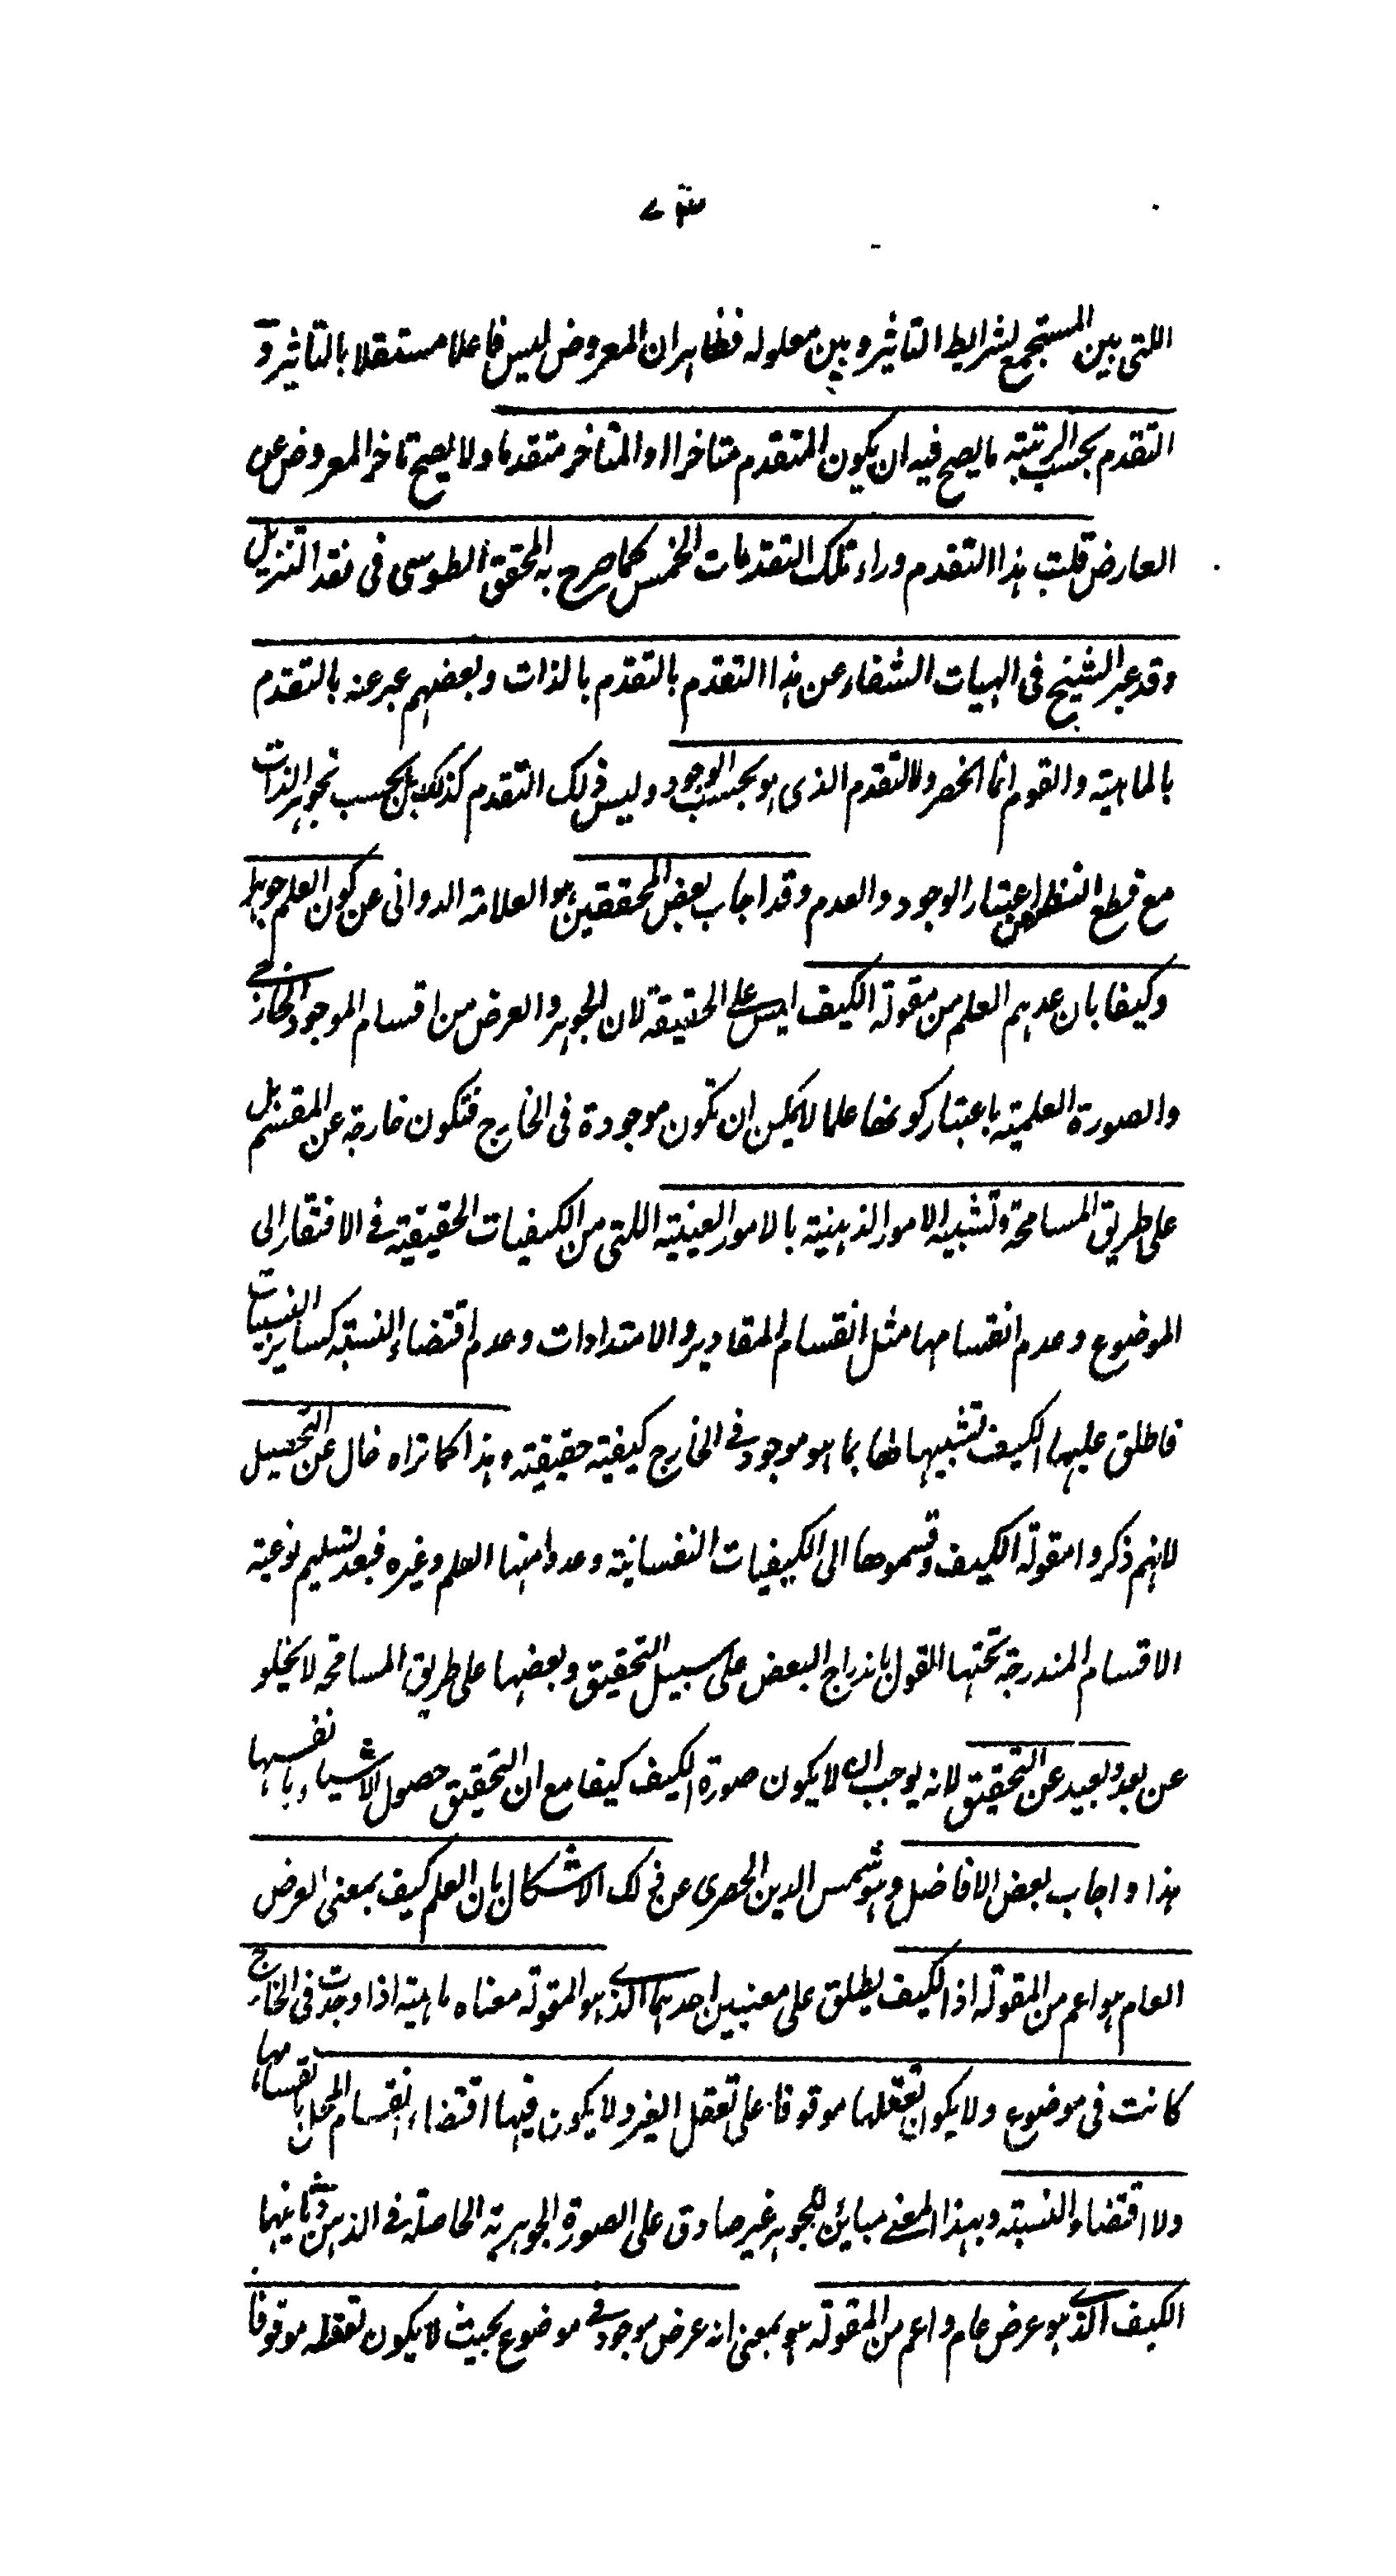 اللتى بين المستجمع لشرايط التاثير وبين معلوله فظاهر ان المعروض ليس فاعلا مستقلا بالتاثير و
التقدم بحسب الرتبة ما يصح فيه ان يكون المتقدم متاخرا او المتاخر متقدما ولا يصح تاخر المعروض عن
العارض قلت هذا التقدم وراء تلك التقدمات الخمس كما صرح به المحقق الطوسى فى نقد التنزيل
وقد عبر الشيخ فى الهيات الشفاء عن هذا التقدم بالتقدم بالذات وبعضهم عبر عنه بالتقدم
بالماهية والقوم انما الحصروا التقدم الذى هو بحسب الوجود وليس ذلك التقدم كذلك بل بحسب تجوهر الذات
مع قطع النظر عن اعتبار الوجود والعدم وقد اجاب بعض المحققين هو العلامة الدوانى عن كون العلم جوهرا
وكيفا بان عدهم العلم من مقولة الكيف ليس على الحقيقة لان الجوهر والعرض من اقسام الموجود الخارجى
والصورة العلمية باعتبار كونها علما لا يمكن ان تكون موجودة فى الخارج فتكون خارجة عن المقسم بل
على طريق المسامحة وتشبيه الامور الذهنية بالامور العينية اللتى من الكيفيات الحقيقية فى الافتقار الى
الموضوع وعدم انقسامها مثل انقسام المقادير والامتدادات وعدم اقتضاء النسبة كساير النسبيات
فاطلق عليها الكيف تشبيها لها بما هو موجود فى الخارج كيفية حقيقية وهذا كما تراه خال عن التحصيل
لانهم ذكروا مقولة الكيف وقسموها الى الكيفيات النفسانية وعدوا منها العلم وغيره فبعد تسليم نوعية
الاقسام المندرجة تحتها القول باندراج البعض على سبيل التحقيق وبعضها على طريق المسامحة لا يخلو
عن بعد وبعيد عن التحقيق لانه يوجب ان لا يكون صورة الكيف كيفا مع ان التحقيق حصول الاشياء بانفسها
هذا واجاب بعض الافاضل وهو شمس الدين الخضرى عن ذلك الاشكال بان العلم كيف بمعنى العرض
العام هو اعم من المقولة اذ الكيف يطلق على معنيين احدهما الذى هو المقولة معناه ماهية اذا وجدت فى الخارج
كانت فى موضوع ولا يكون تعقلها موقوفا على تعقل الغير ولا يكون فيها اقتضاء انقسام المحل بانقسامها
ولا اقتضاء النسبة وبهذا المعنى مبائن للجوهر غير صادق على الصورة الجوهرية الحاصلة فى الذهن وثانيهما
الكيف الذى هو عرض عام واعم من المقولة هو بمعنى انه عرض موجود فى موضوع بحيث لا يكون تعقله موقوفا